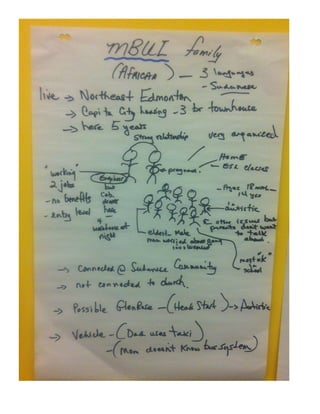 MBUI family
(AFRICAN) — 3 languages
- Sudanese
live → Northeast Edmonton
→ Capital City housing - 3 br townhouse
→ here 5 years
strong relationship
very organized
"working"
2 jobs
- no benefits
- entry level
Engineer
but
cab
driver
here
+
watchman at
night
pregnant
Home
ESL classes
- Ages 18 mon -
14 yrs
autistic
other issues but
parents don't want
to talk
about
"most ok" @
school
eldest Male
mom worried about gang
involvement
→ connected @ Sudanese Community
→ not connected to church.
→ Possible GlenRose - (Head Start) → Autistic
→ Vehicle - (Dad uses taxi)
- (Mom doesn't know bus system)